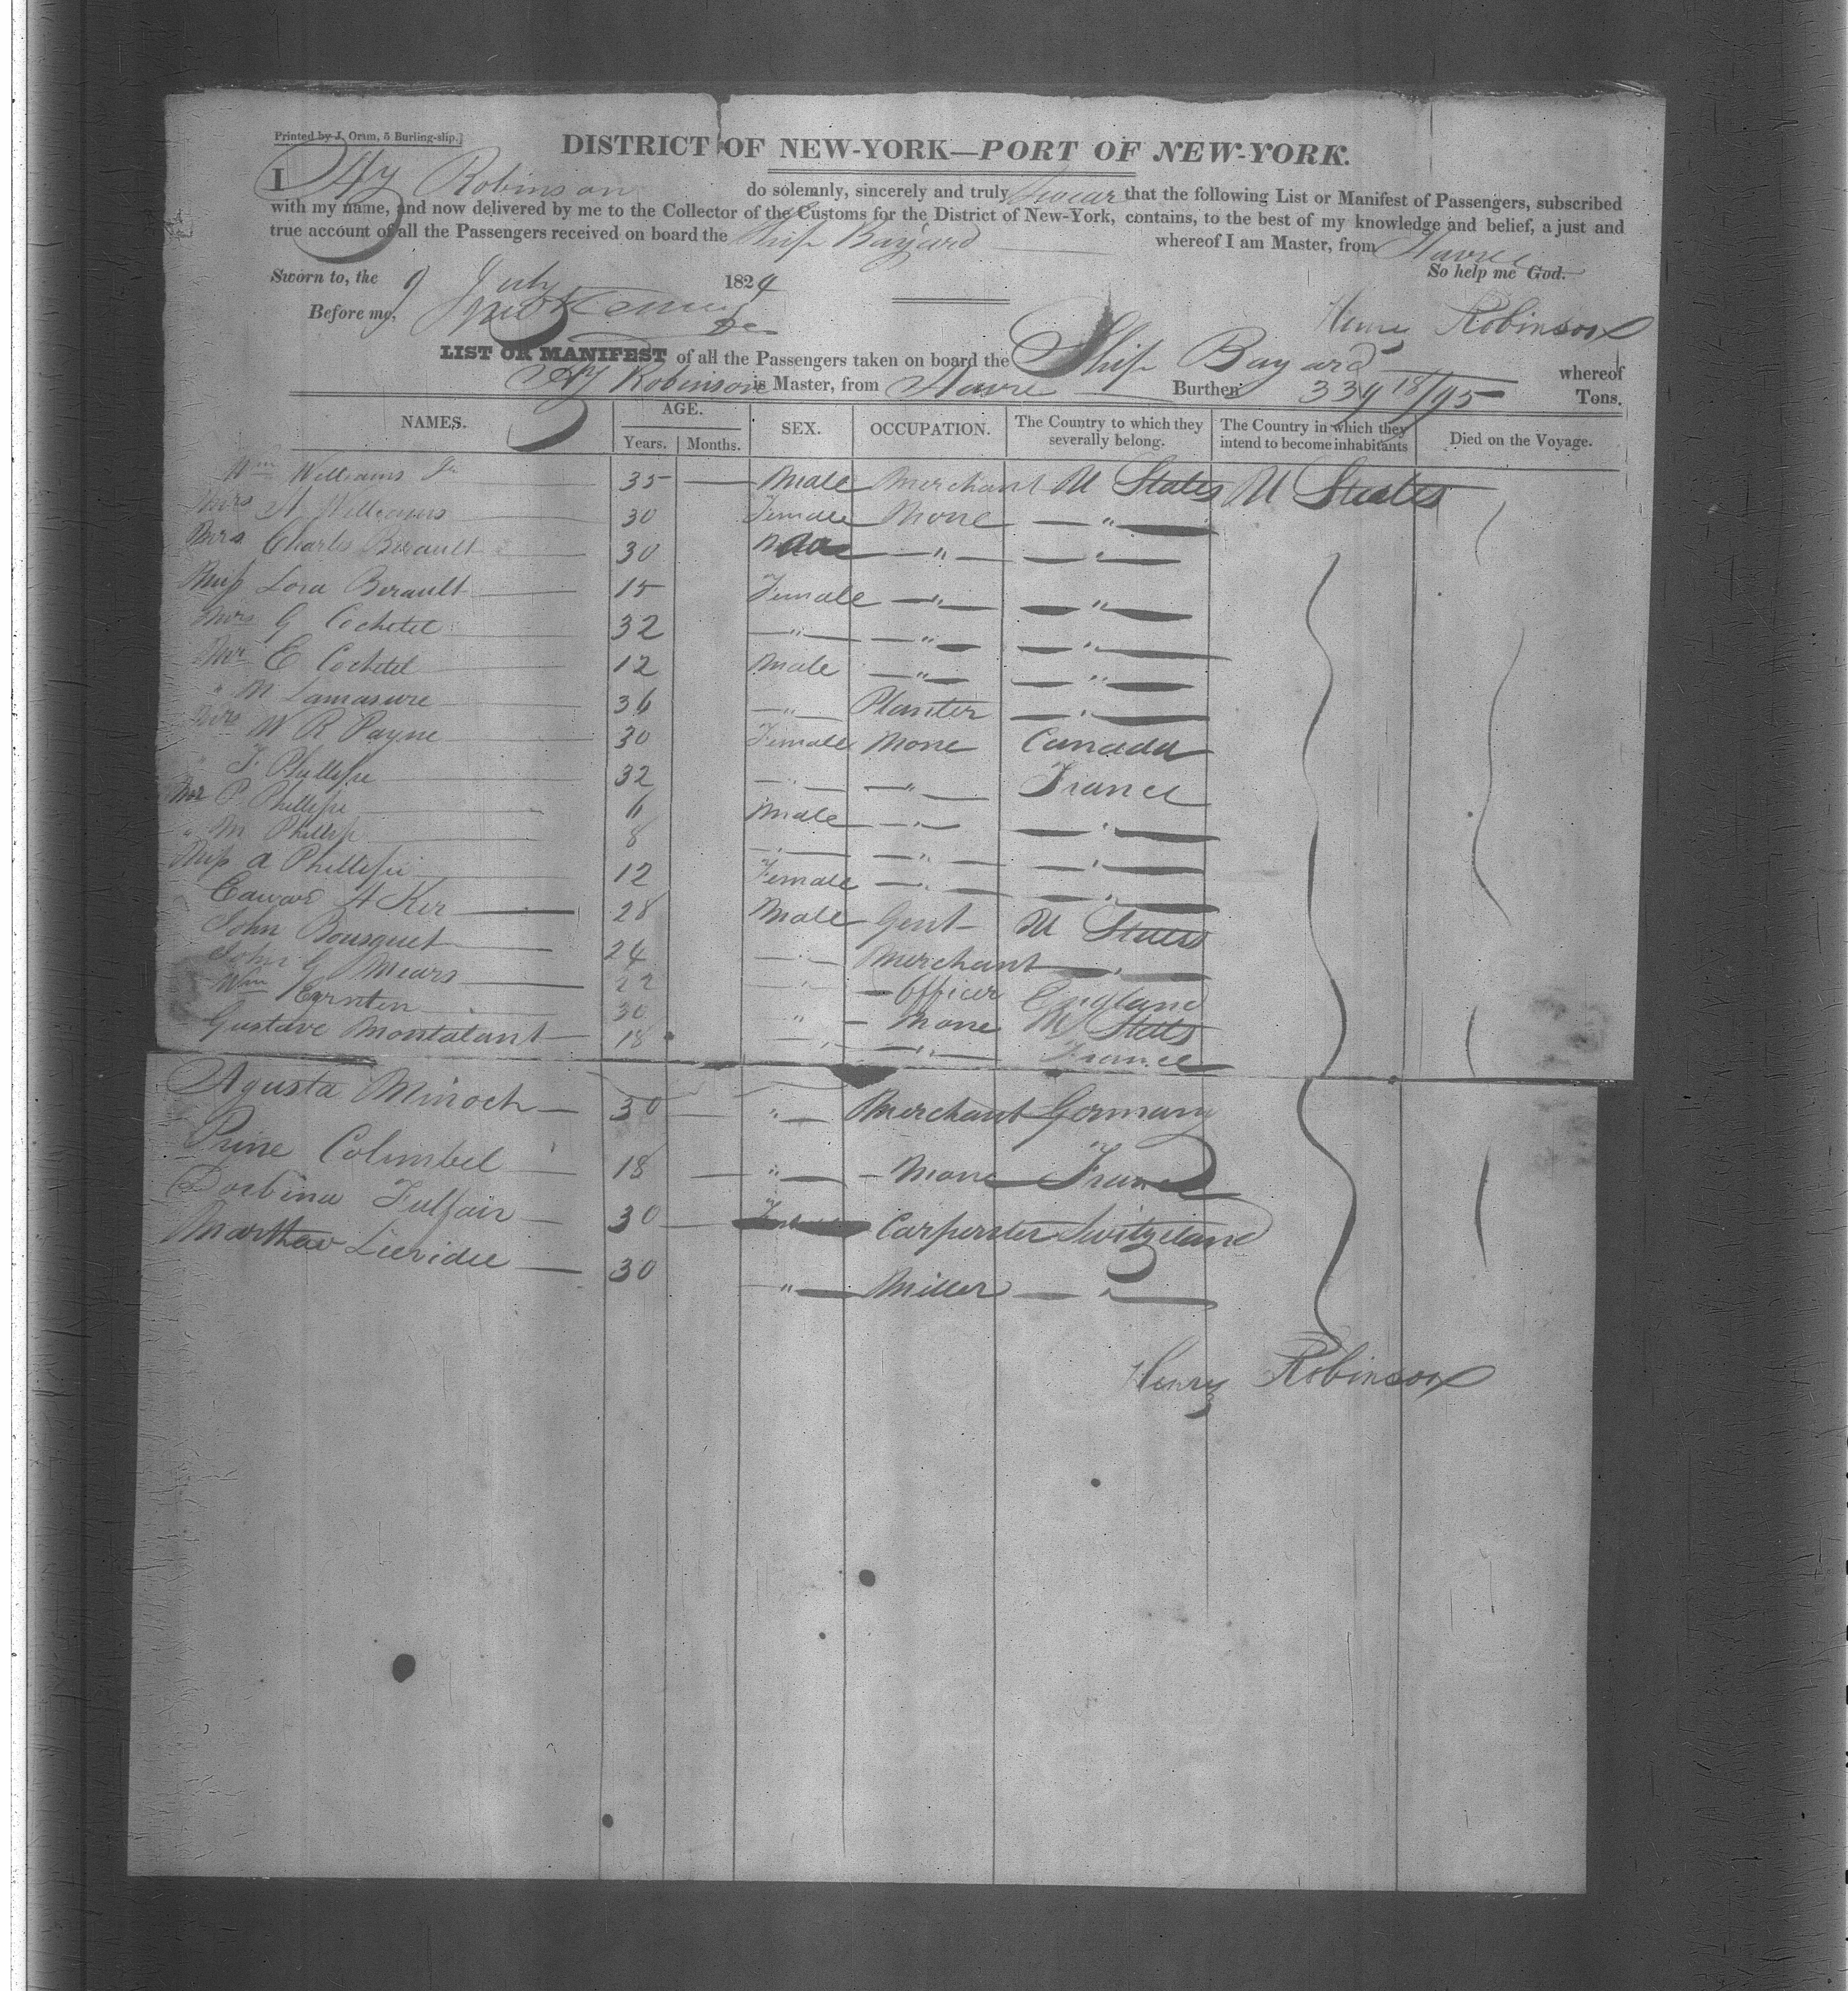 Printed by J. Oram, 5 Burling-slip.]
DISTRICT OF NEW-YORK—PORT OF NEW-YORK.
I Hy Robinson do solemnly, sincerely and truly Swear that the following List or Manifest of Passengers, subscribed
with my name, and now delivered by me to the Collector of the Customs for the District of New-York, contains, to the best of my knowledge and belief, a just and
true account of all the Passengers received on board the Ship Bayard whereof I am Master, from Havre
Sworn to, the 9 July 1824 So help me God.
Before me, Henry Robinson
LIST OR MANIFEST of all the Passengers taken on board the Ship Bayard whereof
Hy Robinson is Master, from Havre Burthen 339 18/95 Tons.
NAMES. AGE. Years. Months. SEX. OCCUPATION. The Country to which they severally belong. The Country in which they intend to become inhabitants Died on the Voyage.
Wm Williams Jr 35 — Male Merchant U States U States
Mrs A Williams 30 Female None — " —
Mrs Charles Berault 30 — " — — " —
Miss Lora Berault 15 Female — " — — " —
Mrs G Cochetel 32 — " — — " — — " —
Mr E Cochetel 12 Male — " — — " —
" M Lamasure 36 — " — Planter — " —
Mrs W R Payne 30 Female None Canada
" F Phillipe 32 — " — — " — France
Mr P Phillipe 6 Male — " — — " —
" M Phillip 8 — " — — " — — " —
Miss A Phillipe 12 Female — " — — " —
Edward A Ker 28 Male Gent U States
John Bousquet 24 — " — Merchant — " —
John G Mears 22 — " — Officer England
Wm 30 " — None U States
Gustave Montalant 18 — " — — " — France
Agusta Minoch — 30 — " — Merchant Germany
Prine Colimbel — 18 — " — — None France
Dorbina Fulfair — 30 — Carpenter Switzeland
Marthew — 30 — " — Miller — " —
Henry Robinson